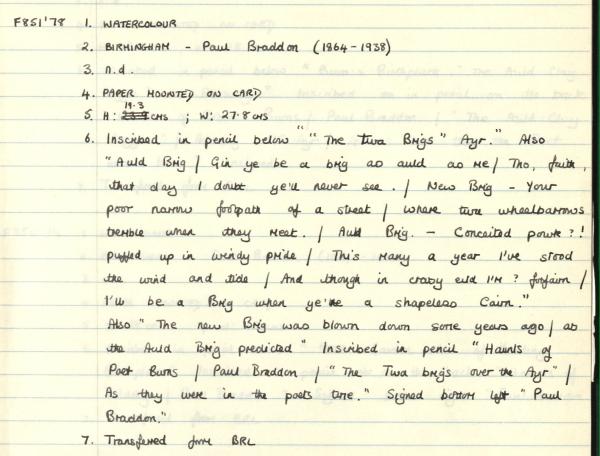 F851'78 1. WATERCOLOUR
2. BIRMINGHAM - Paul Braddon (1864-1938)
3. n.d.
4. PAPER MOUNTED ON CARD
5. H: 19.3 CMS ; W: 27.8 CMS
6. Inscribed in pencil below ""The Twa Brigs" Ayr." Also
"Auld Brig / Gin ye be a brig as auld as me / Tho, faith,
that day I doubt ye'd never see. / New Brig - Your
poor narrow footpath of a street / where twa wheelbarrows
tremble when they meet. / Auld Brig. - Conceited powk?!
puffed up in windy pride / This many a year I've stood
the wind and tide / And though in crazy eild I'm ? forfairn /
I'll be a Brig when ye're a shapeless Cairn."
Also " The new Brig was blown down some years ago / as
the Auld Brig predicted" Inscribed in pencil "Haunts of
Poet Burns / Paul Braddon / "The Twa brigs over the Ayr" /
As they were in the poets time." Signed bottom left "Paul
Braddon."
7. Transferred from BRL